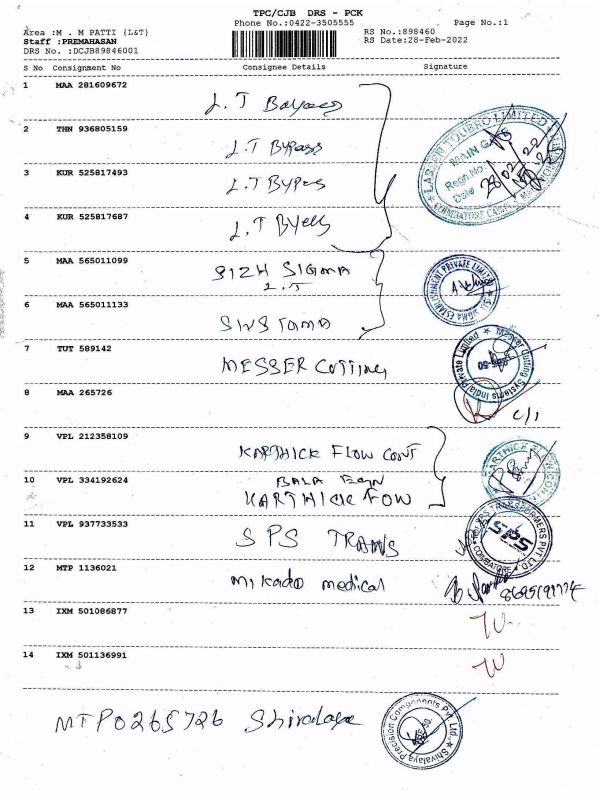 TPC/CJB DRS - PCK
Phone No.:0422-3505555
Page No.:1
Area :M . M PATTI (L&T)
Staff :PREMAHASAN
DRS No. :DCJB89846001
RS No.:898460
RS Date:28-Feb-2022
S No Consignment No Consignee Details Signature
1 MAA 281609672
L.T
2 THN 936805159
L.T Bypass
3 KUR 525817493
L.T
4 KUR 525817687
L.T
LARSEN TOUBRO LIMITED
MAIN GATE
Regn.No.
Date 28/02/22
5 MAA 565011099
SIZH SIGMA
L.T
6 MAA 565011133
7 TUT 589142
MESSER Cutting
Messer Cutting Systems India Private Limited
8 MAA 265726
C/I
9 VPL 212358109
KARTHICK FLOW CONT
10 VPL 334192624
BALA
KARTHICK FOW
11 VPL 937733533
SPS TRANS
SPS TRANSFORMERS PVT. LTD.
SPS
COIMBATORE
12 MTP 1136021
Mikado medical
13 IXM 501086877
14 IXM 501136991
MTP0265726 Shivalaya
Shivalaya Precision Components Pvt. Ltd.,